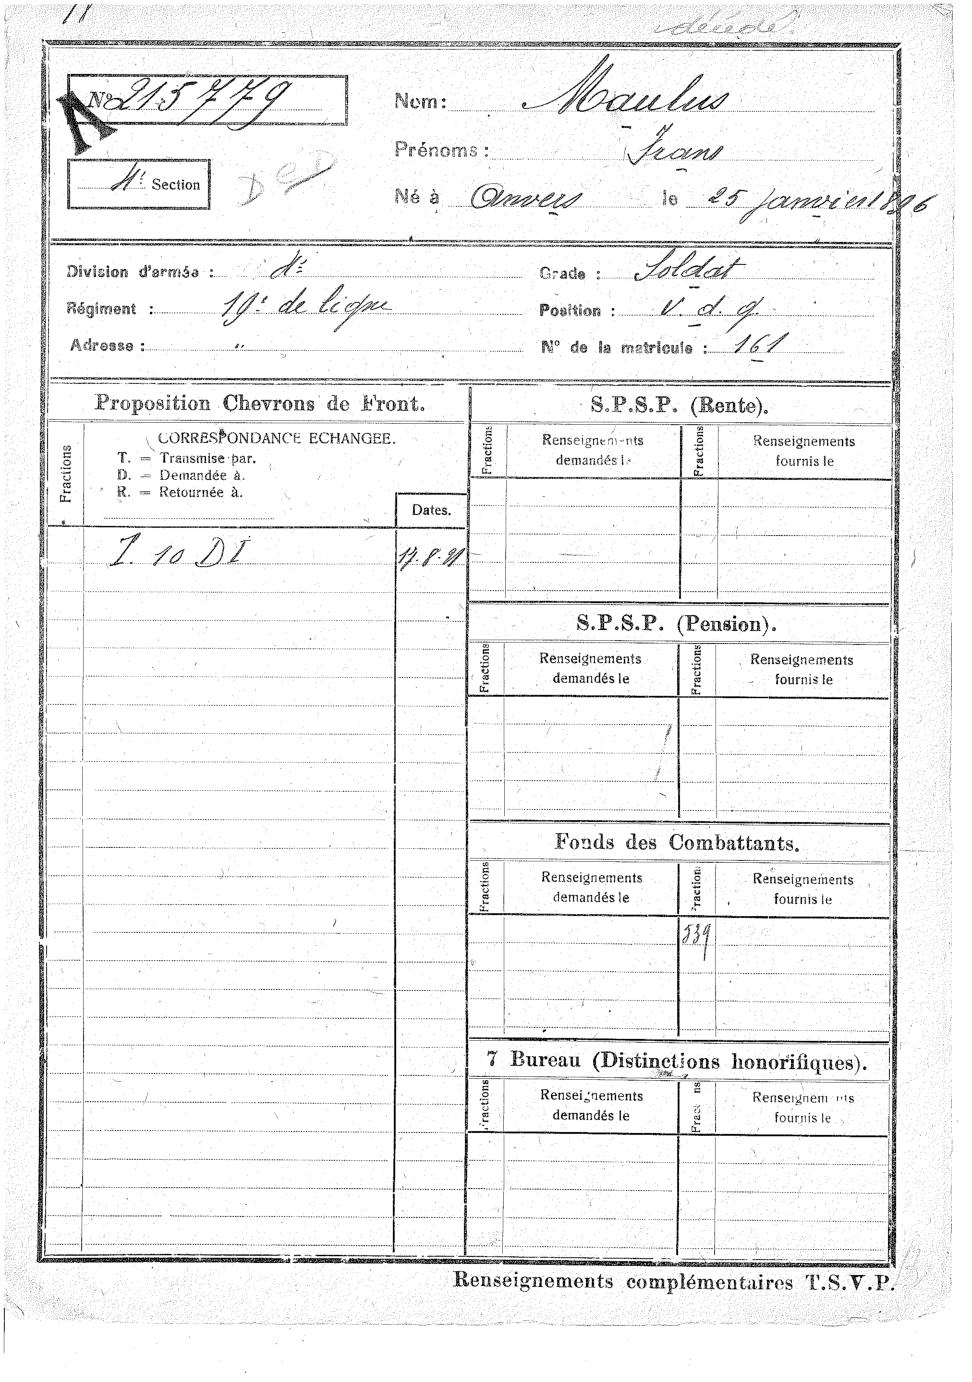 décédé.
A
N° 215779
4e Section
DCD
Nom: Maulus
Prénoms: Frans
Né à Anvers le 25 janvier 1896
Division d'armée: 4e
Grade: Soldat
Régiment: 19e de ligne
Position: v. d. g.
Adresse: "
N° de la matricule: 161
Proposition Chevrons de Front.
Fractions
CORRESPONDANCE ECHANGEE.
T. = Transmise par.
D. = Demandée à.
R. = Retournée à.
Dates.
T. 10 DI 17.8.21
S.P.S.P. (Rente).
Fractions
Renseignements demandés le
Fractions
Renseignements fournis le
S.P.S.P. (Pension).
Fractions
Renseignements demandés le
Fractions
Renseignements fournis le
Fonds des Combattants.
Fractions
Renseignements demandés le
Fractions
Renseignements fournis le
539
7 Bureau (Distinctions honorifiques).
Fractions
Renseignements demandés le
Fractions
Renseignements fournis le
Renseignements complémentaires T.S.V.P.